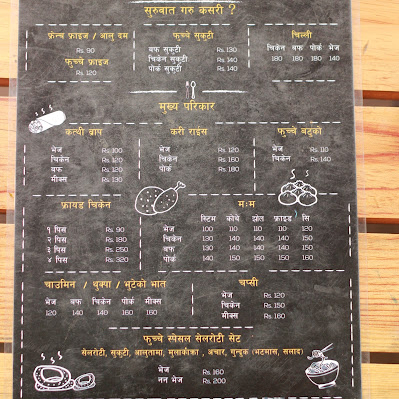 सुरुवात गरु कसरी ?
फ्रेन्च फ्राइज / आलु दम
Rs. 90
फुच्चे फ्राइज
Rs. 120
फुच्चे सुकुटी
बफ सुकुटी Rs. 130
चिकेन सुकुटी Rs. 140
पोर्क सुकुटी Rs. 140
चिल्ली
चिकेन बफ पोर्क भेज
180 180 180 140
मुख्य परिकार
काथी र्‍याप
भेज Rs. 100
चिकेन Rs. 120
बफ Rs. 120
मीक्स Rs. 130
करी राईस
भेज Rs. 120
चिकेन Rs. 160
पोर्क Rs. 180
फुच्चे बटुको
भेज Rs. 110
चिकेन Rs. 140
फ्रायड चिकेन
१ पिस Rs. 90
२ पिस Rs. 180
३ पिस Rs. 250
४ पिस Rs. 320
मःम
स्टिम कोथे झोल फ्राइड सि
भेज 100 110 110 110 120
चिकेन 130 140 140 140 150
बफ 120 140 140 140 150
पोर्क 140 150 150 150 160
चाउमिन / थुक्पा / भुटेको भात
भेज बफ चिकेन पोर्क मीक्स
120 140 140 160 160
चप्सी
भेज Rs. 120
चिकेन Rs. 150
मीक्स Rs. 160
फुच्चे स्पेसल सेलरोटी सेट
सेलरोटी, सुकुटी, आलुतामा, मुलाकोका , अचार, गुन्द्रुक (भटमास, सलाद)
भेज Rs. 160
नन भेज Rs. 200